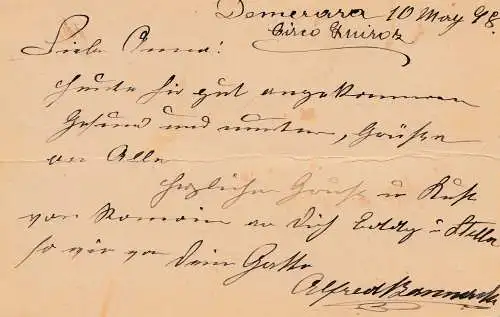 Demerara 10 May 98.
Circo Quiroz
Liebe Anna!
heute hir gut angekommen
Gesund und munter, Grüße
an Alle
herzliche Gruß u Kuß
von Romain an Dich Eddy u Stella
so wie von Dein Gatte
Alfred